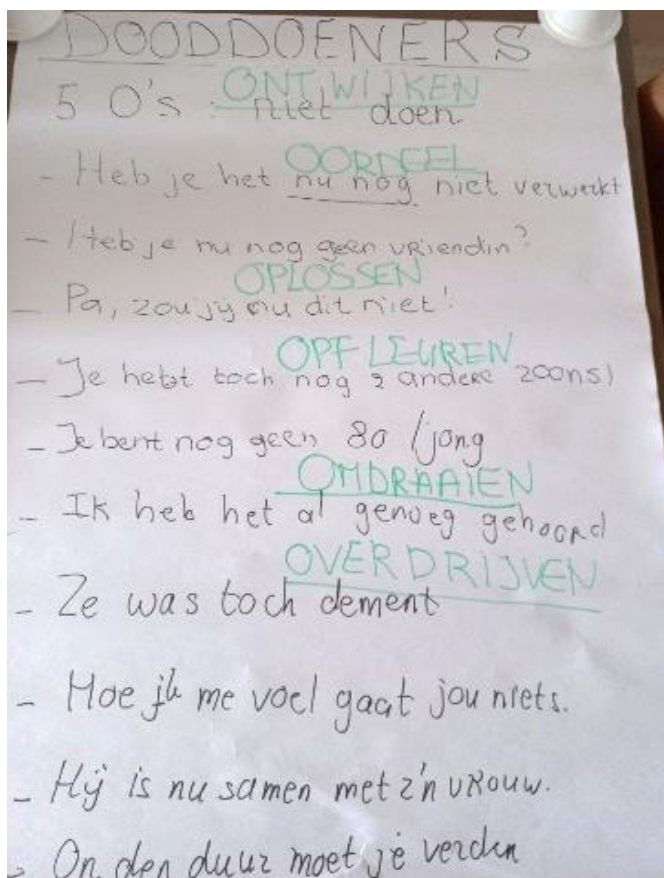 DOODDOENERS
ONTWIJKEN
5 O's : niet doen
OORDEEL
- Heb je het nu nog niet verwerkt
- Heb je nu nog geen vriendin?
OPLOSSEN
- Pa, zou jy nu dit niet!
OPFLEUREN
- Je hebt toch nog 2 andere zoons)
- Je bent nog geen 80 / jong
OMDRAAIEN
- Ik heb het al genoeg gehoord
OVERDRIJVEN
- Ze was toch dement
- Hoe ik me voel gaat jou niets.
- Hÿ is nu samen met z'n vrouw.
- On den duur moet je verder